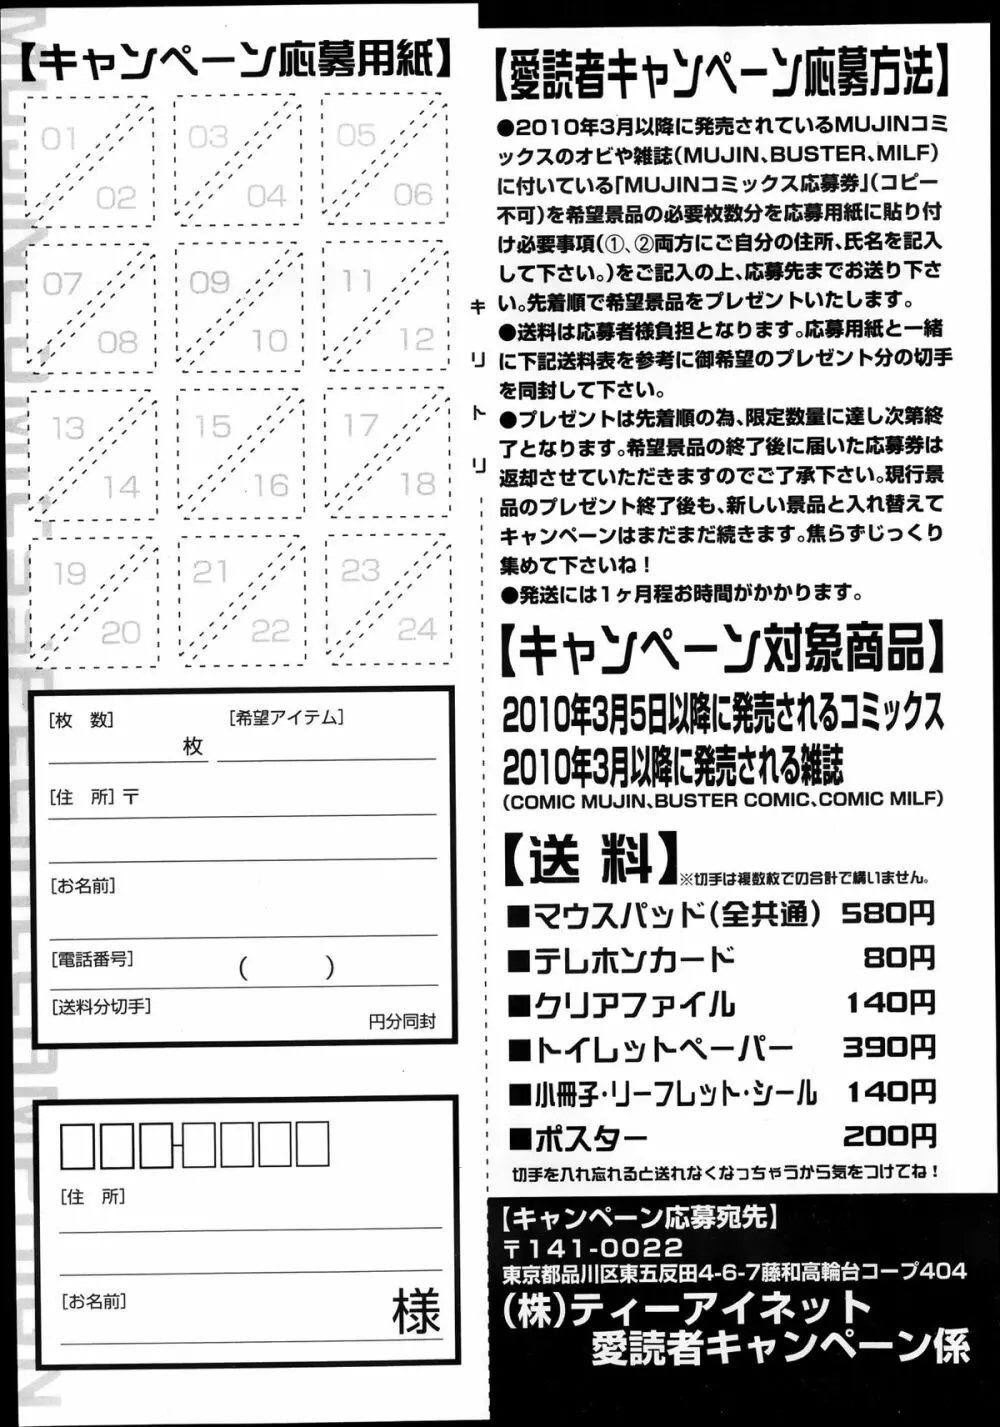 【キャンペーン応募用紙】
01
02
03
04
05
06
07
08
09
10
11
12
13
14
15
16
17
18
19
20
21
22
23
24
[枚　数]
枚
[希望アイテム]
[住　所]〒
[お名前]
[電話番号]
(　　　)
[送料分切手]
円分同封
[住　所]
[お名前]
様
キリトリ
【愛読者キャンペーン応募方法】
●2010年3月以降に発売されているMUJINコミ
ックスのオビや雑誌(MUJIN、BUSTER、MILF)
に付いている「MUJINコミックス応募券」(コピー
不可)を希望景品の必要枚数分を応募用紙に貼り付
け必要事項(①、②両方にご自分の住所、氏名を記入
して下さい。)をご記入の上、応募先までお送り下さ
い。先着順で希望景品をプレゼントいたします。
●送料は応募者様負担となります。応募用紙と一緒
に下記送料表を参考に御希望のプレゼント分の切手
を同封して下さい。
●プレゼントは先着順の為、限定数量に達し次第終
了となります。希望景品の終了後に届いた応募券は
返却させていただきますのでご了承下さい。現行景
品のプレゼント終了後も、新しい景品と入れ替えて
キャンペーンはまだまだ続きます。焦らずじっくり
集めて下さいね！
●発送には1ヶ月程お時間がかかります。
【キャンペーン対象商品】
2010年3月5日以降に発売されるコミックス
2010年3月以降に発売される雑誌
(COMIC MUJIN、BUSTER COMIC、COMIC MILF)
【送 料】※切手は複数枚での合計で構いません。
■マウスパッド(全共通) 580円
■テレホンカード 80円
■クリアファイル 140円
■トイレットペーパー 390円
■小冊子・リーフレット・シール 140円
■ポスター 200円
切手を入れ忘れると送れなくなっちゃうから気をつけてね！
【キャンペーン応募宛先】
〒141-0022
東京都品川区東五反田4-6-7藤和高輪台コープ404
(株)ティーアイネット
愛読者キャンペーン係